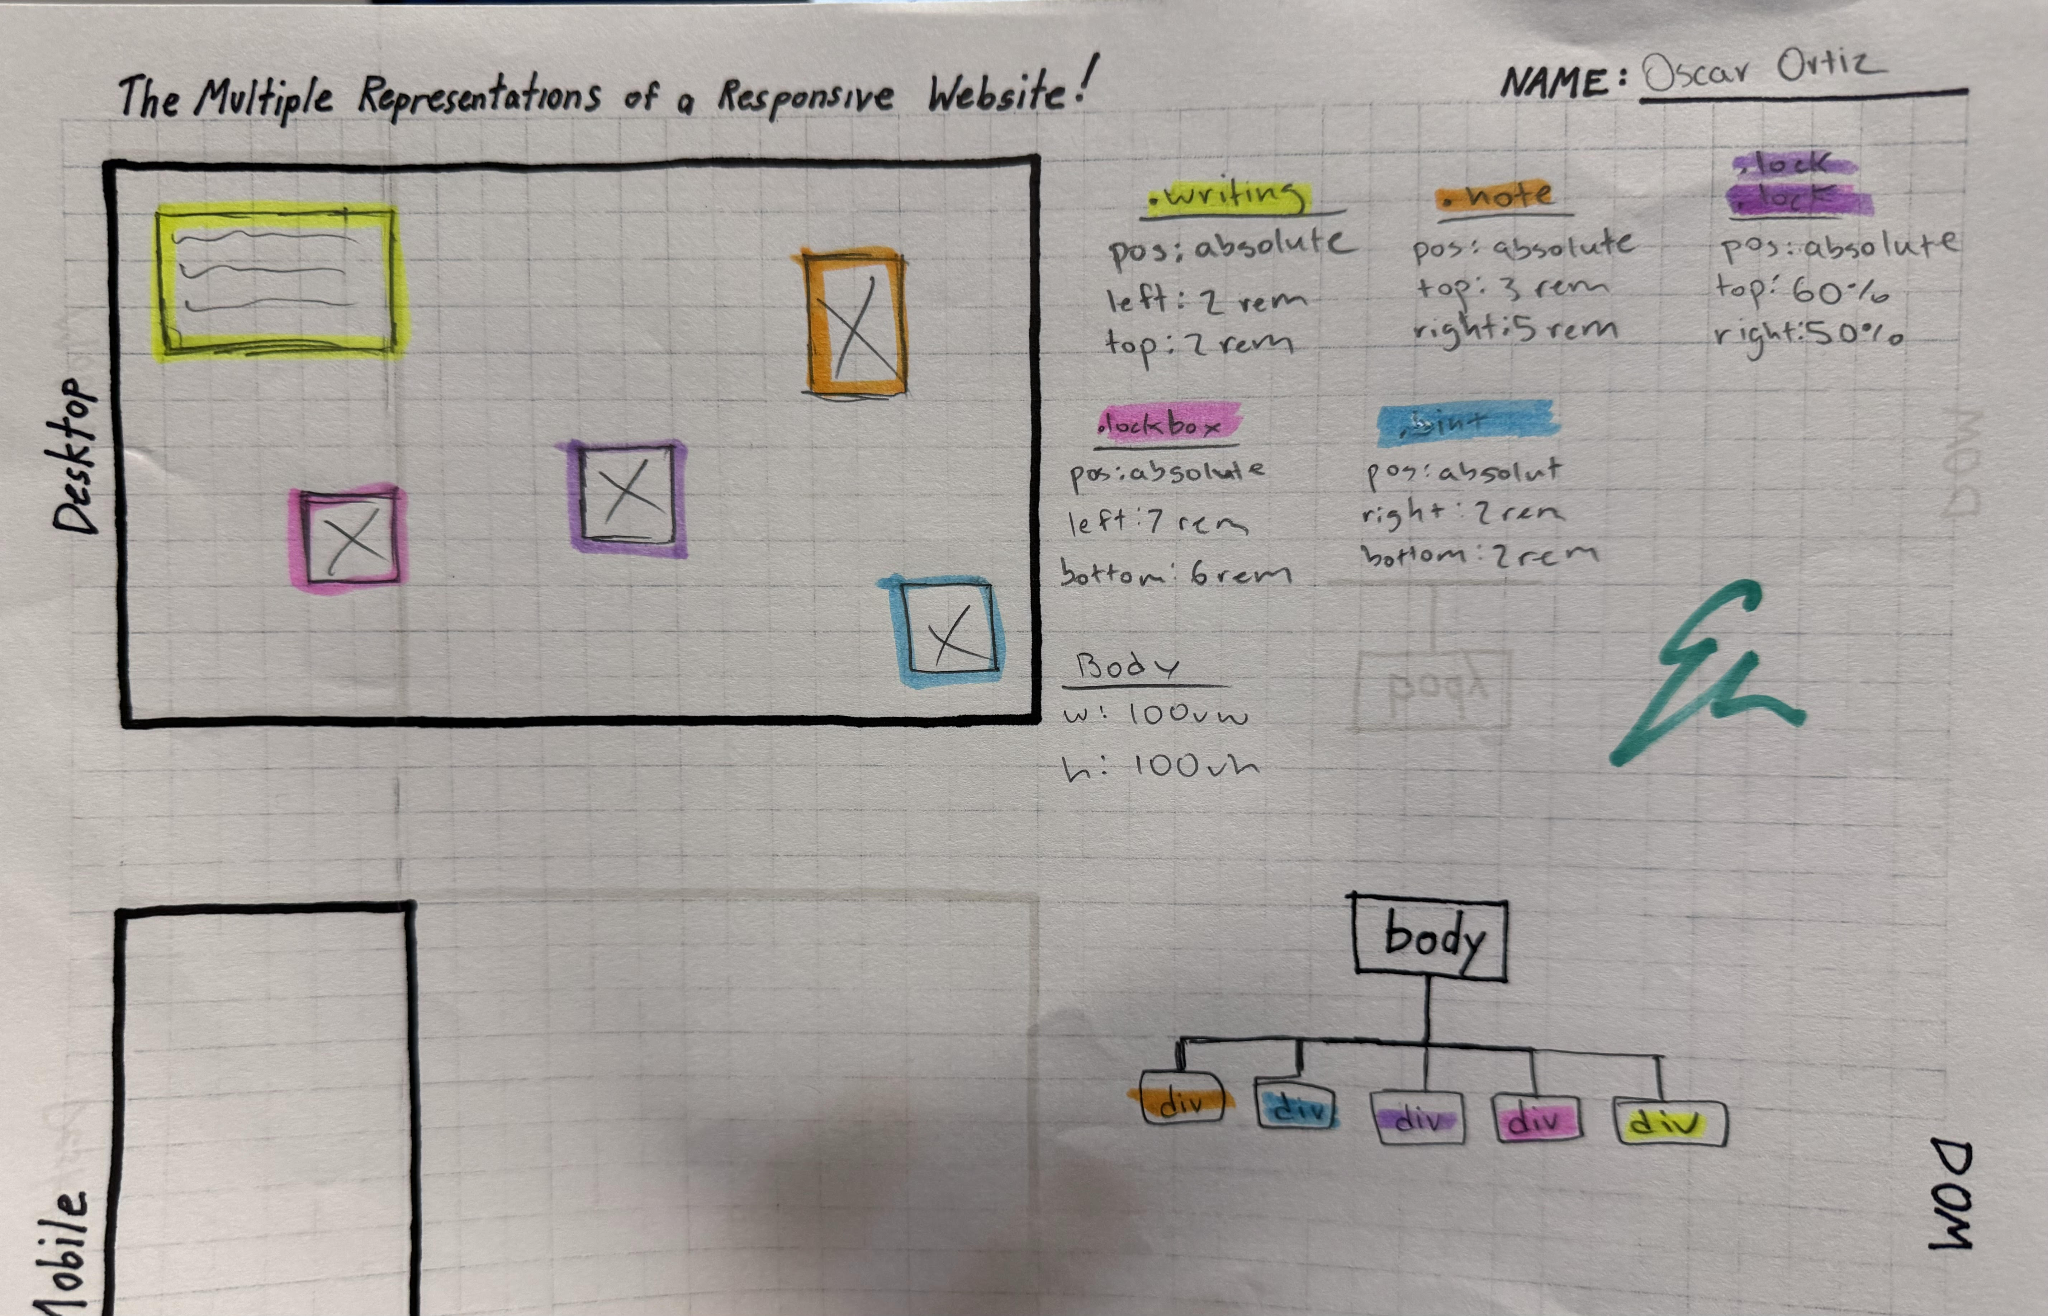 The Multiple Representations of a Responsive Website!
NAME: Oscar Ortiz
Desktop
.writing
pos: absolute
left: 2 rem
top: 2 rem
.note
pos: absolute
top: 3 rem
right: 5 rem
.lock
.lock
pos: absolute
top: 60%
right: 50%
.lockbox
pos: absolute
left: 7 rem
bottom: 6 rem
pos: absolut
right: 2 rem
bottom: 2 rem
Body
w: 100vw
h: 100vh
body
Mobile
body
div div div div div
DOM
DOM